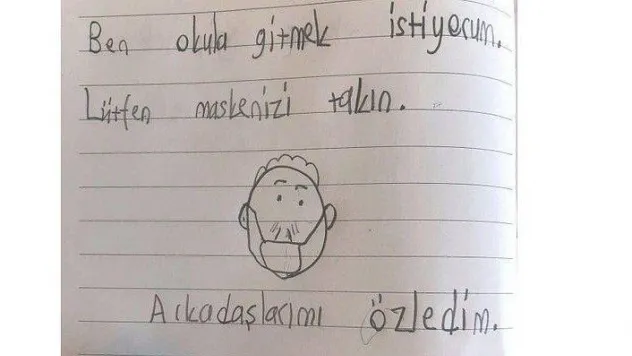 Ben okula gitmek istiyorum.
Lütfen maskenizi takın.
Arkadaşlarımı özledim.